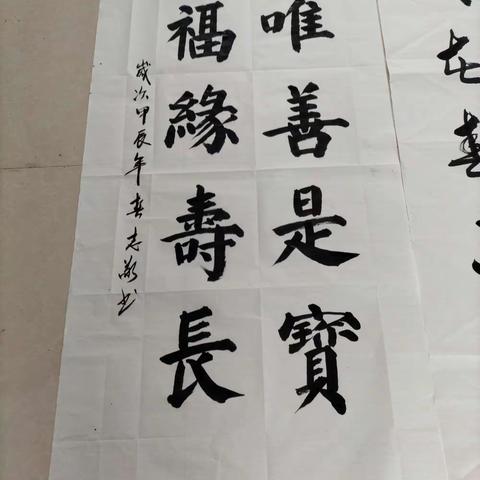 唯善是寶
福緣壽長
歲次甲辰年春志书